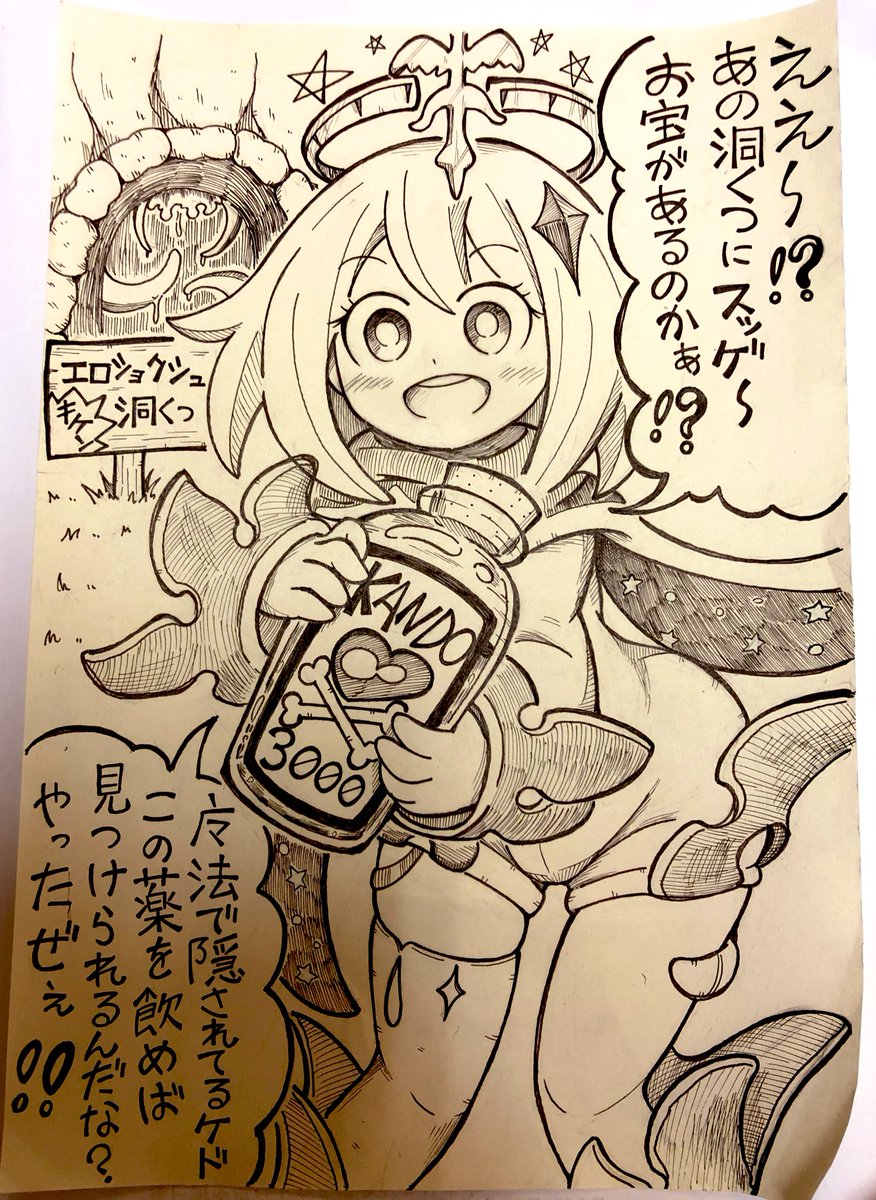 ええ〜!?
あの洞くつにスッゲ〜
お宝があるのかぁ!?
エロショクシュ
洞くつ
キケン
KANDO
3000
魔法で隠されてるケド
この薬を飲めば
見つけられるんだな?
やったぜぇ!!